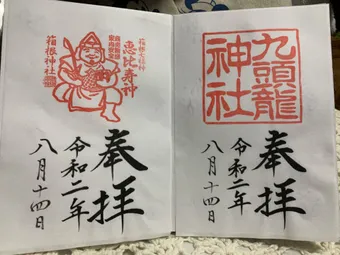 九頭龍
神社
奉拝
令和二年
八月十四日
箱根七福神
恵比寿神
箱根神社
奉拝
令和二年
八月十四日